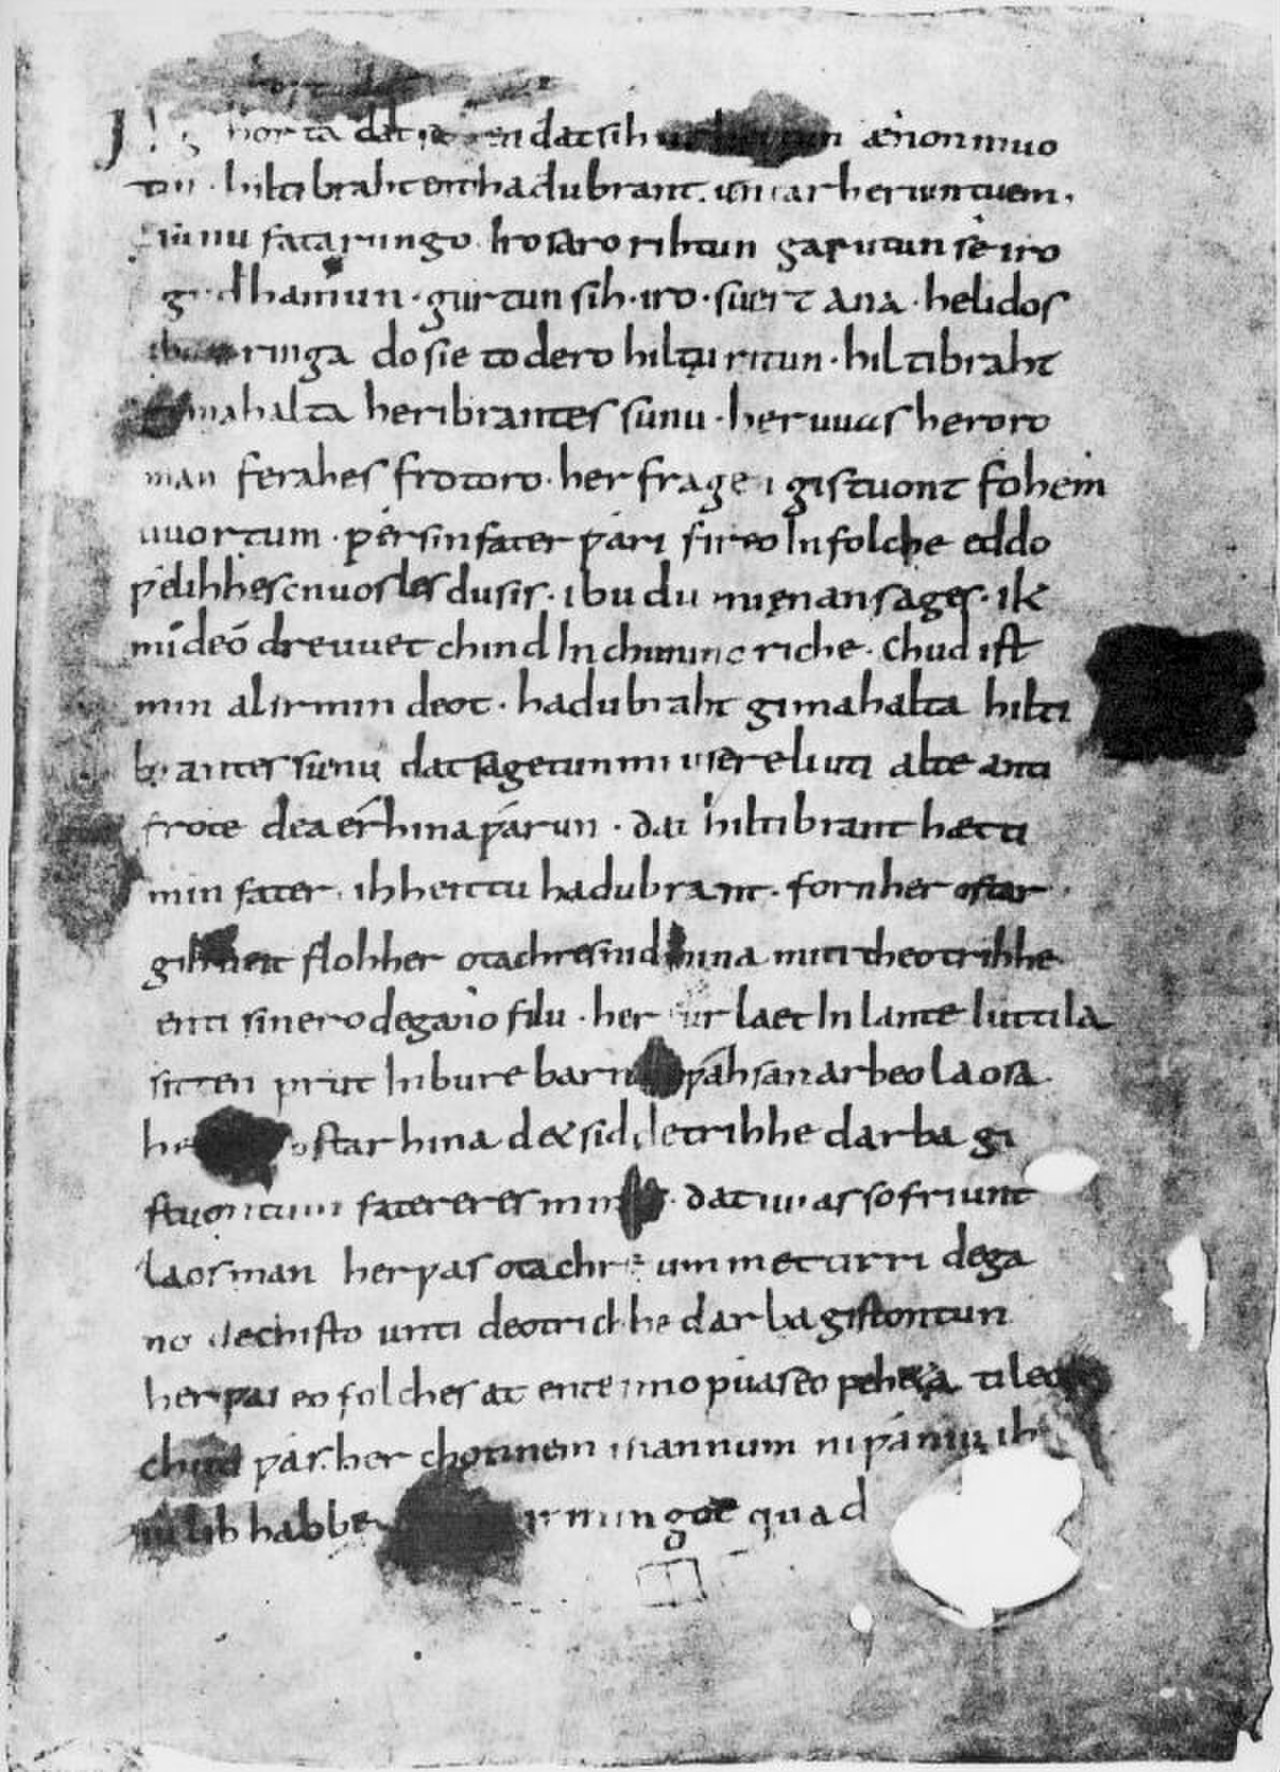 horta đat seggen đat sih ænon muo
tin · hiltibraht enti hadubrant · untar heriun tuem ·
sunu fatarungo · iro saro rihtun garutun sê iro
gudhamun · gurtun sih · iro · suert ana · helidos
ringa do sie to dero hiltu ritun · hiltibraht
gimahalta heribrantes sunu · her uuas heroro
man ferahes frotoro · her fragen gistuont fohem
uuortum · ƿer sin fater ƿari fireo In folche eddo
ƿelihhes cnuosles du sis · ibu du mi ęnan sages · ik
mi deo dre uuet chind In chunincriche · chud ist
min al irmin deot · hadubraht gimahalta hilti
brantes sunu dat sagetun mi usere liuti alte anti
frote dea érhina ƿarun · dat hiltibrant hætti
min fater · ih heittu hadubrant · forn her ostar
gihueit floh her otachres nid hina miti theotrihhe
enti sinero degano filu · her furlaet In lante luttila
sitten prut In bure barn ƿahsan arbeo laosa ·
ostar hina d&sid detrihhe darba gi
stuontum fatereres mines · dat uuas so friunt
laos man her ƿas otachre ummettirri dega
no dechisto unti deotrichhe darba gistontun
her ƿas eo folches at ente imo ƿuas eo ƿeheta ti leop
chud ƿas · her chonnem mannum ni ƿaniu ih
iu lib habbe irmingot quad